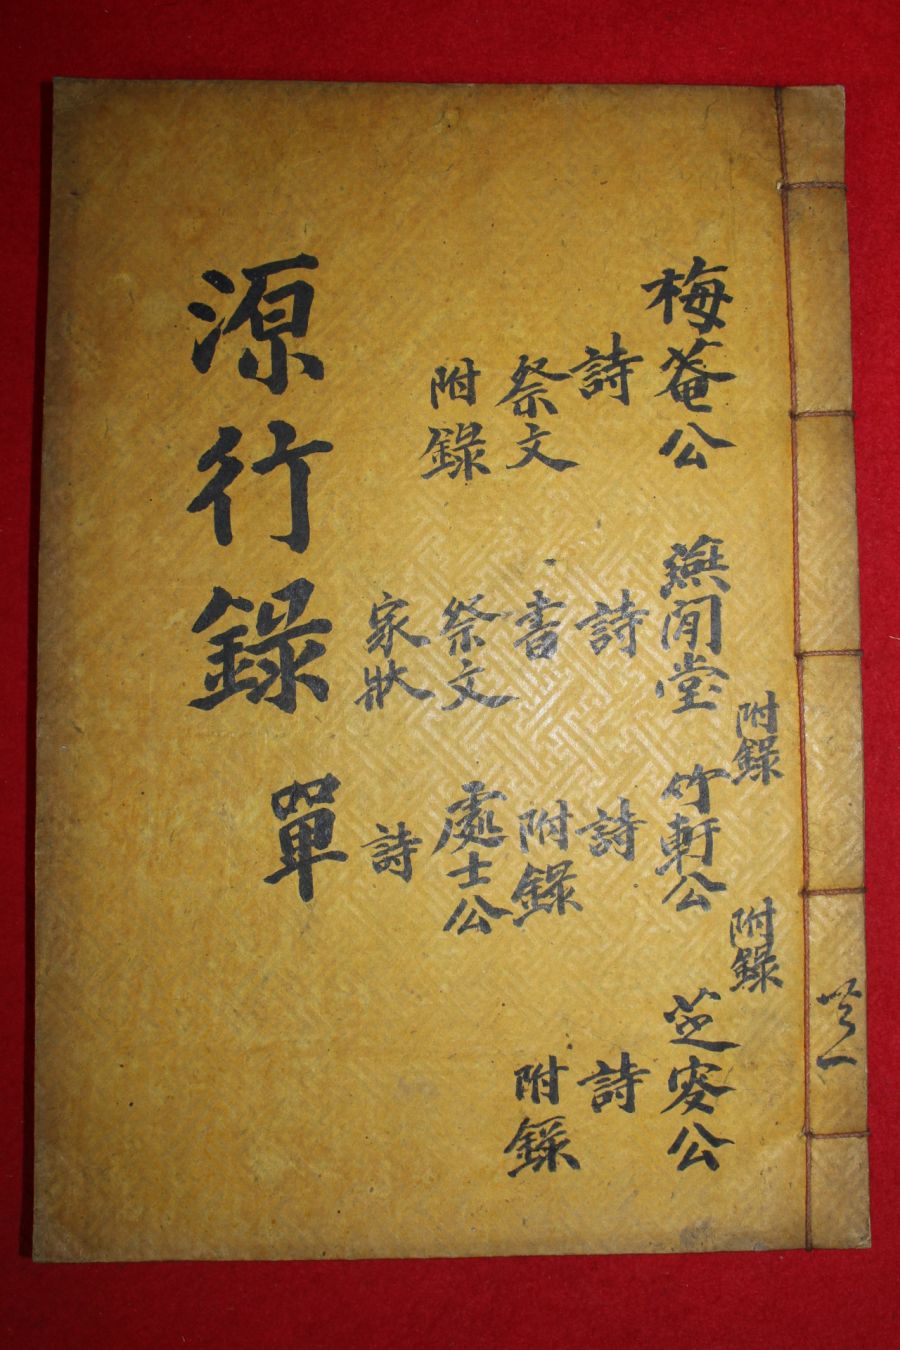 梅菴公
詩
祭文
附錄
無閒堂
詩
書
祭文
家狀
附錄
竹軒公
詩
附錄
處士公
詩
附錄
芝窓公
詩
附錄
源行錄 單
共一